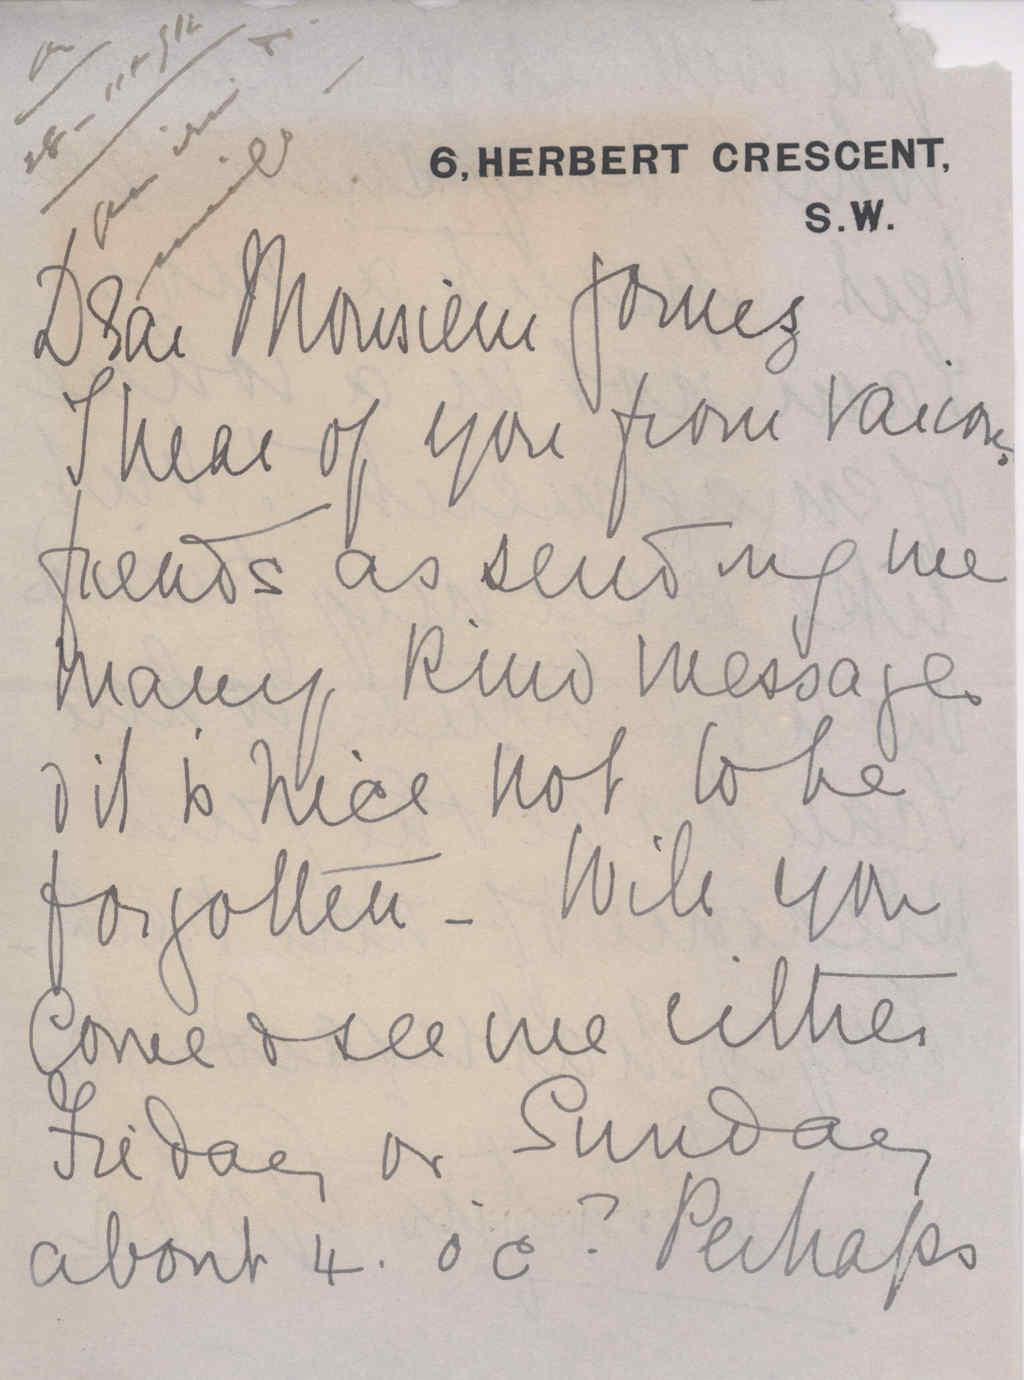 28-11-912
6, HERBERT CRESCENT,
S.W.
Dear Monsieur Gomez
I hear of you from various
friends as sending me
many kind messages
& it is nice not to be
forgotten - Will you
Come & see me either
Friday or Sunday
about 4. o'c? Perhaps